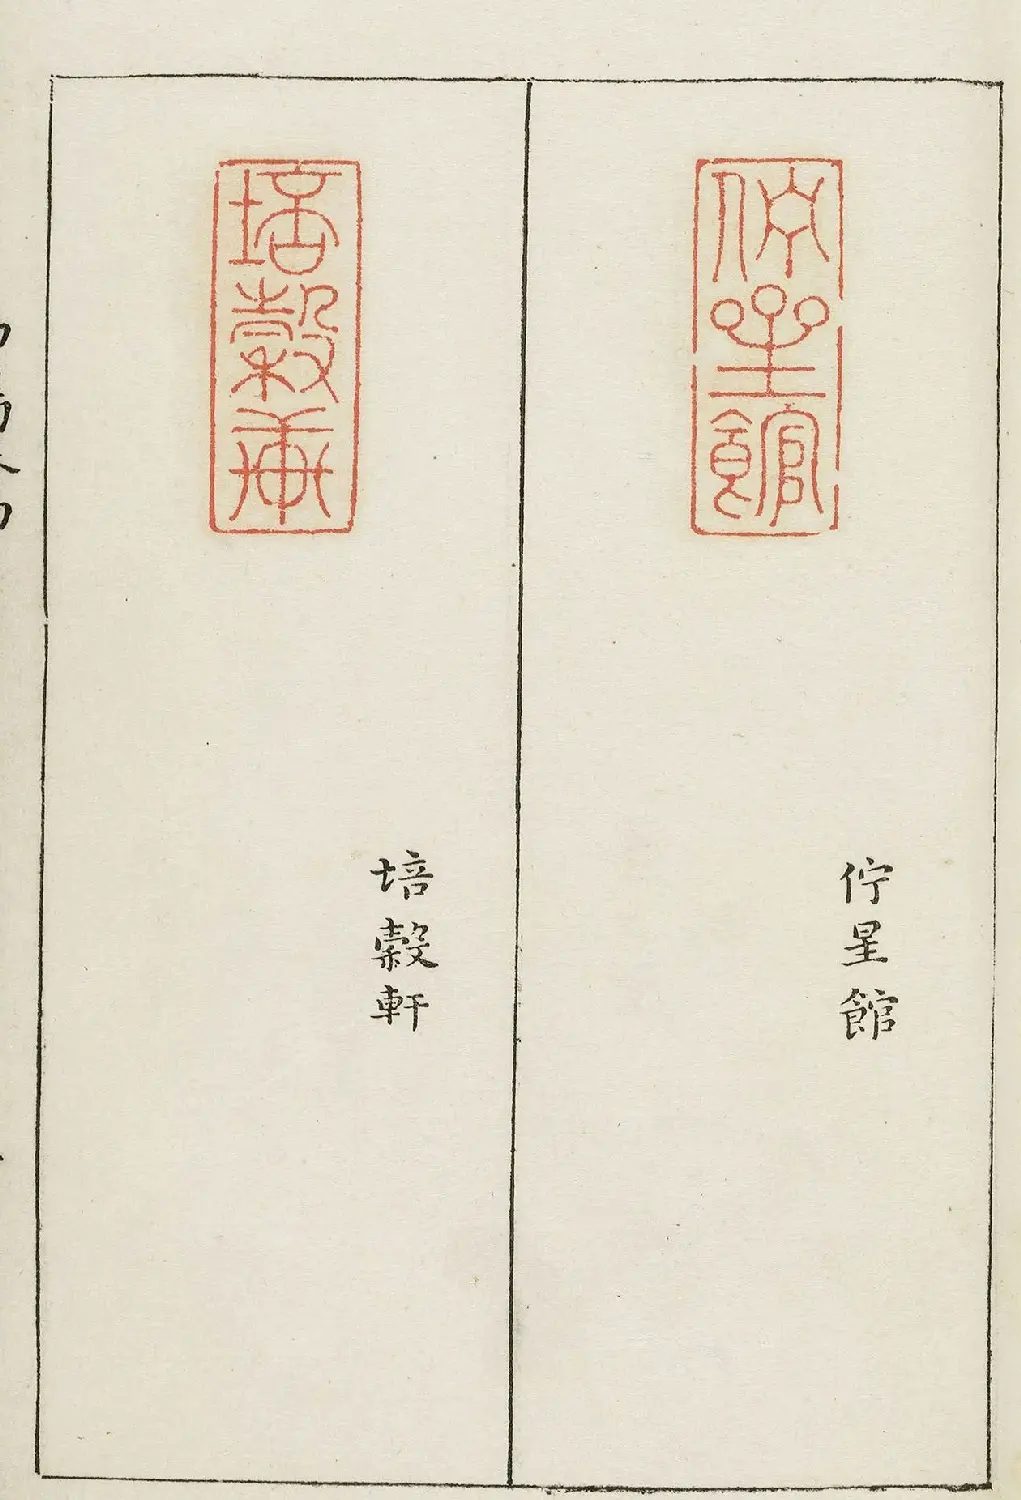 佇星館
佇星館
培穀軒
培穀軒